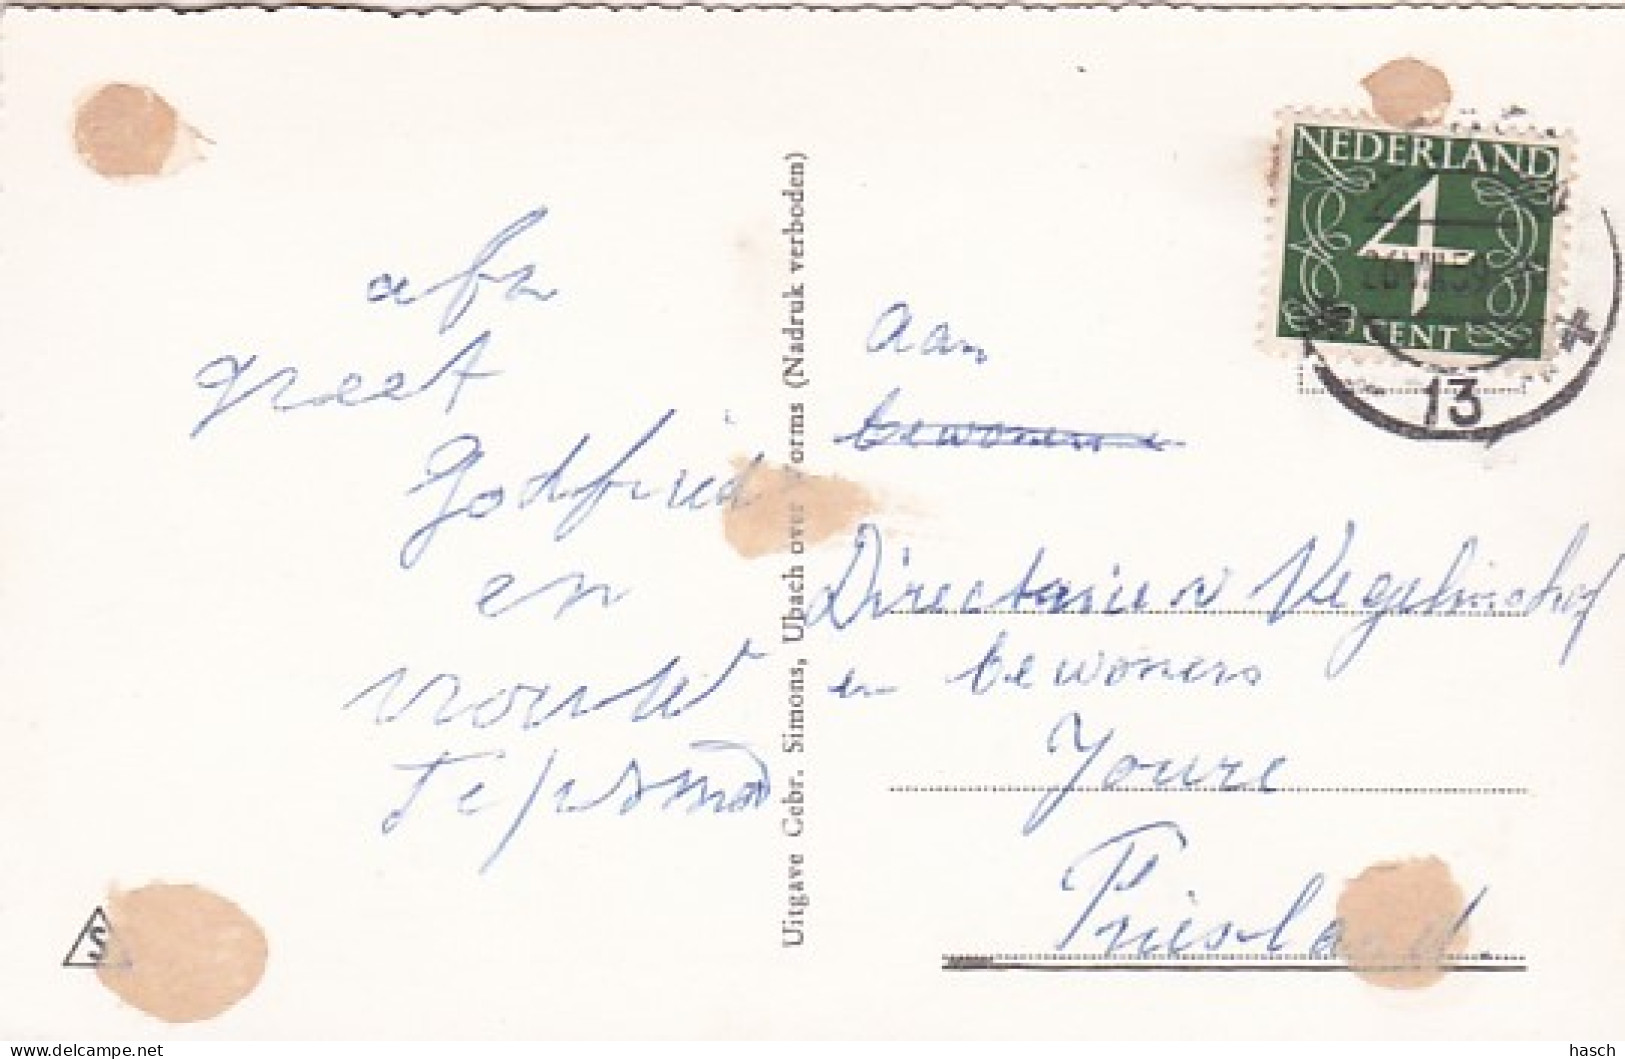 afz
greet
Godfried
en
vrouw
Uitgave Gebr. Simons, Ubach over Worms (Nadruk verboden)
S
NEDERLAND
4
CENT
13
aan
bewoners
Directrice v Vegelinshof
en bewoners
Joure
Friesland.
delcampe.net
hasch